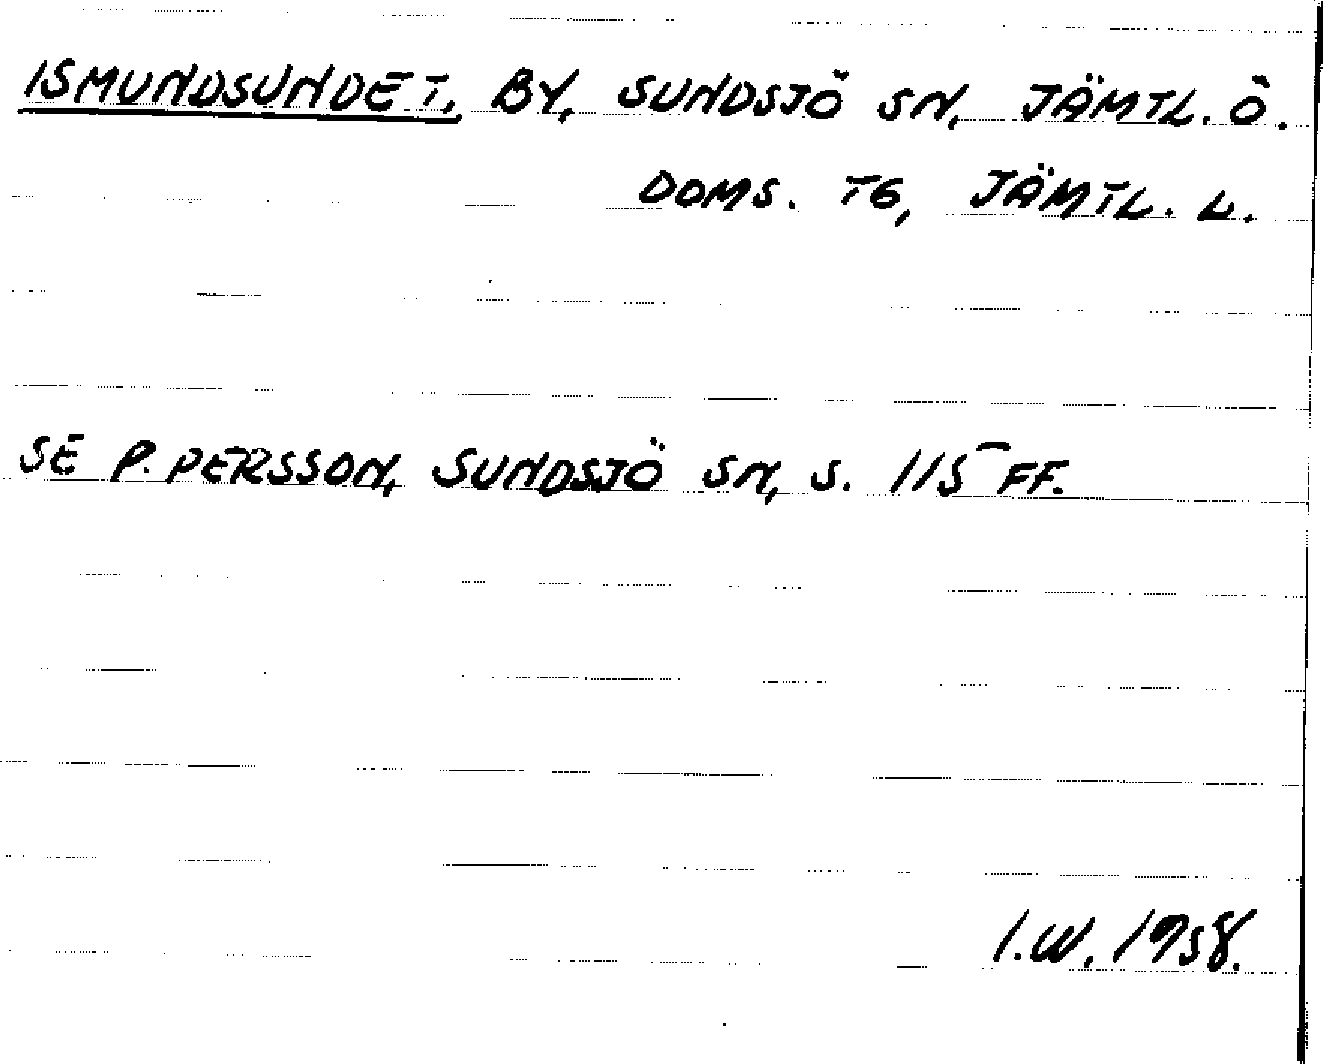 ISMUNDSUNDET, BY, SUNDSJÖ SN, JÄMTL. Ö.
DOMS. TG, JÄMTL. L.
SE P. PERSSON, SUNDSJÖ SN, S. 115 FF.
I.W. 1958.